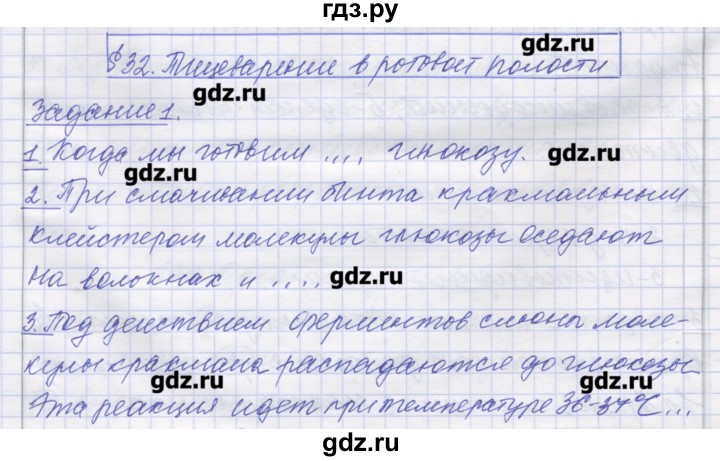 гдз.ру
§32. Пищеварение в ротовой полости
gdz.ru
gdz.ru
Задание 1.
1. Когда мы готовим .... глюкозу.
gdz.ru
gdz.ru
2. При смачивании бинта крахмальным
клейстером молекулы глюкозы оседают
на волокнах и ....
gdz.ru
3. Под действием ферментов слюны моле-
кулы крахмала распадаются до глюкозы
gdz.ru
gdz.ru
Эта реакция идет при температуре 36-37°С...
gdz.ru